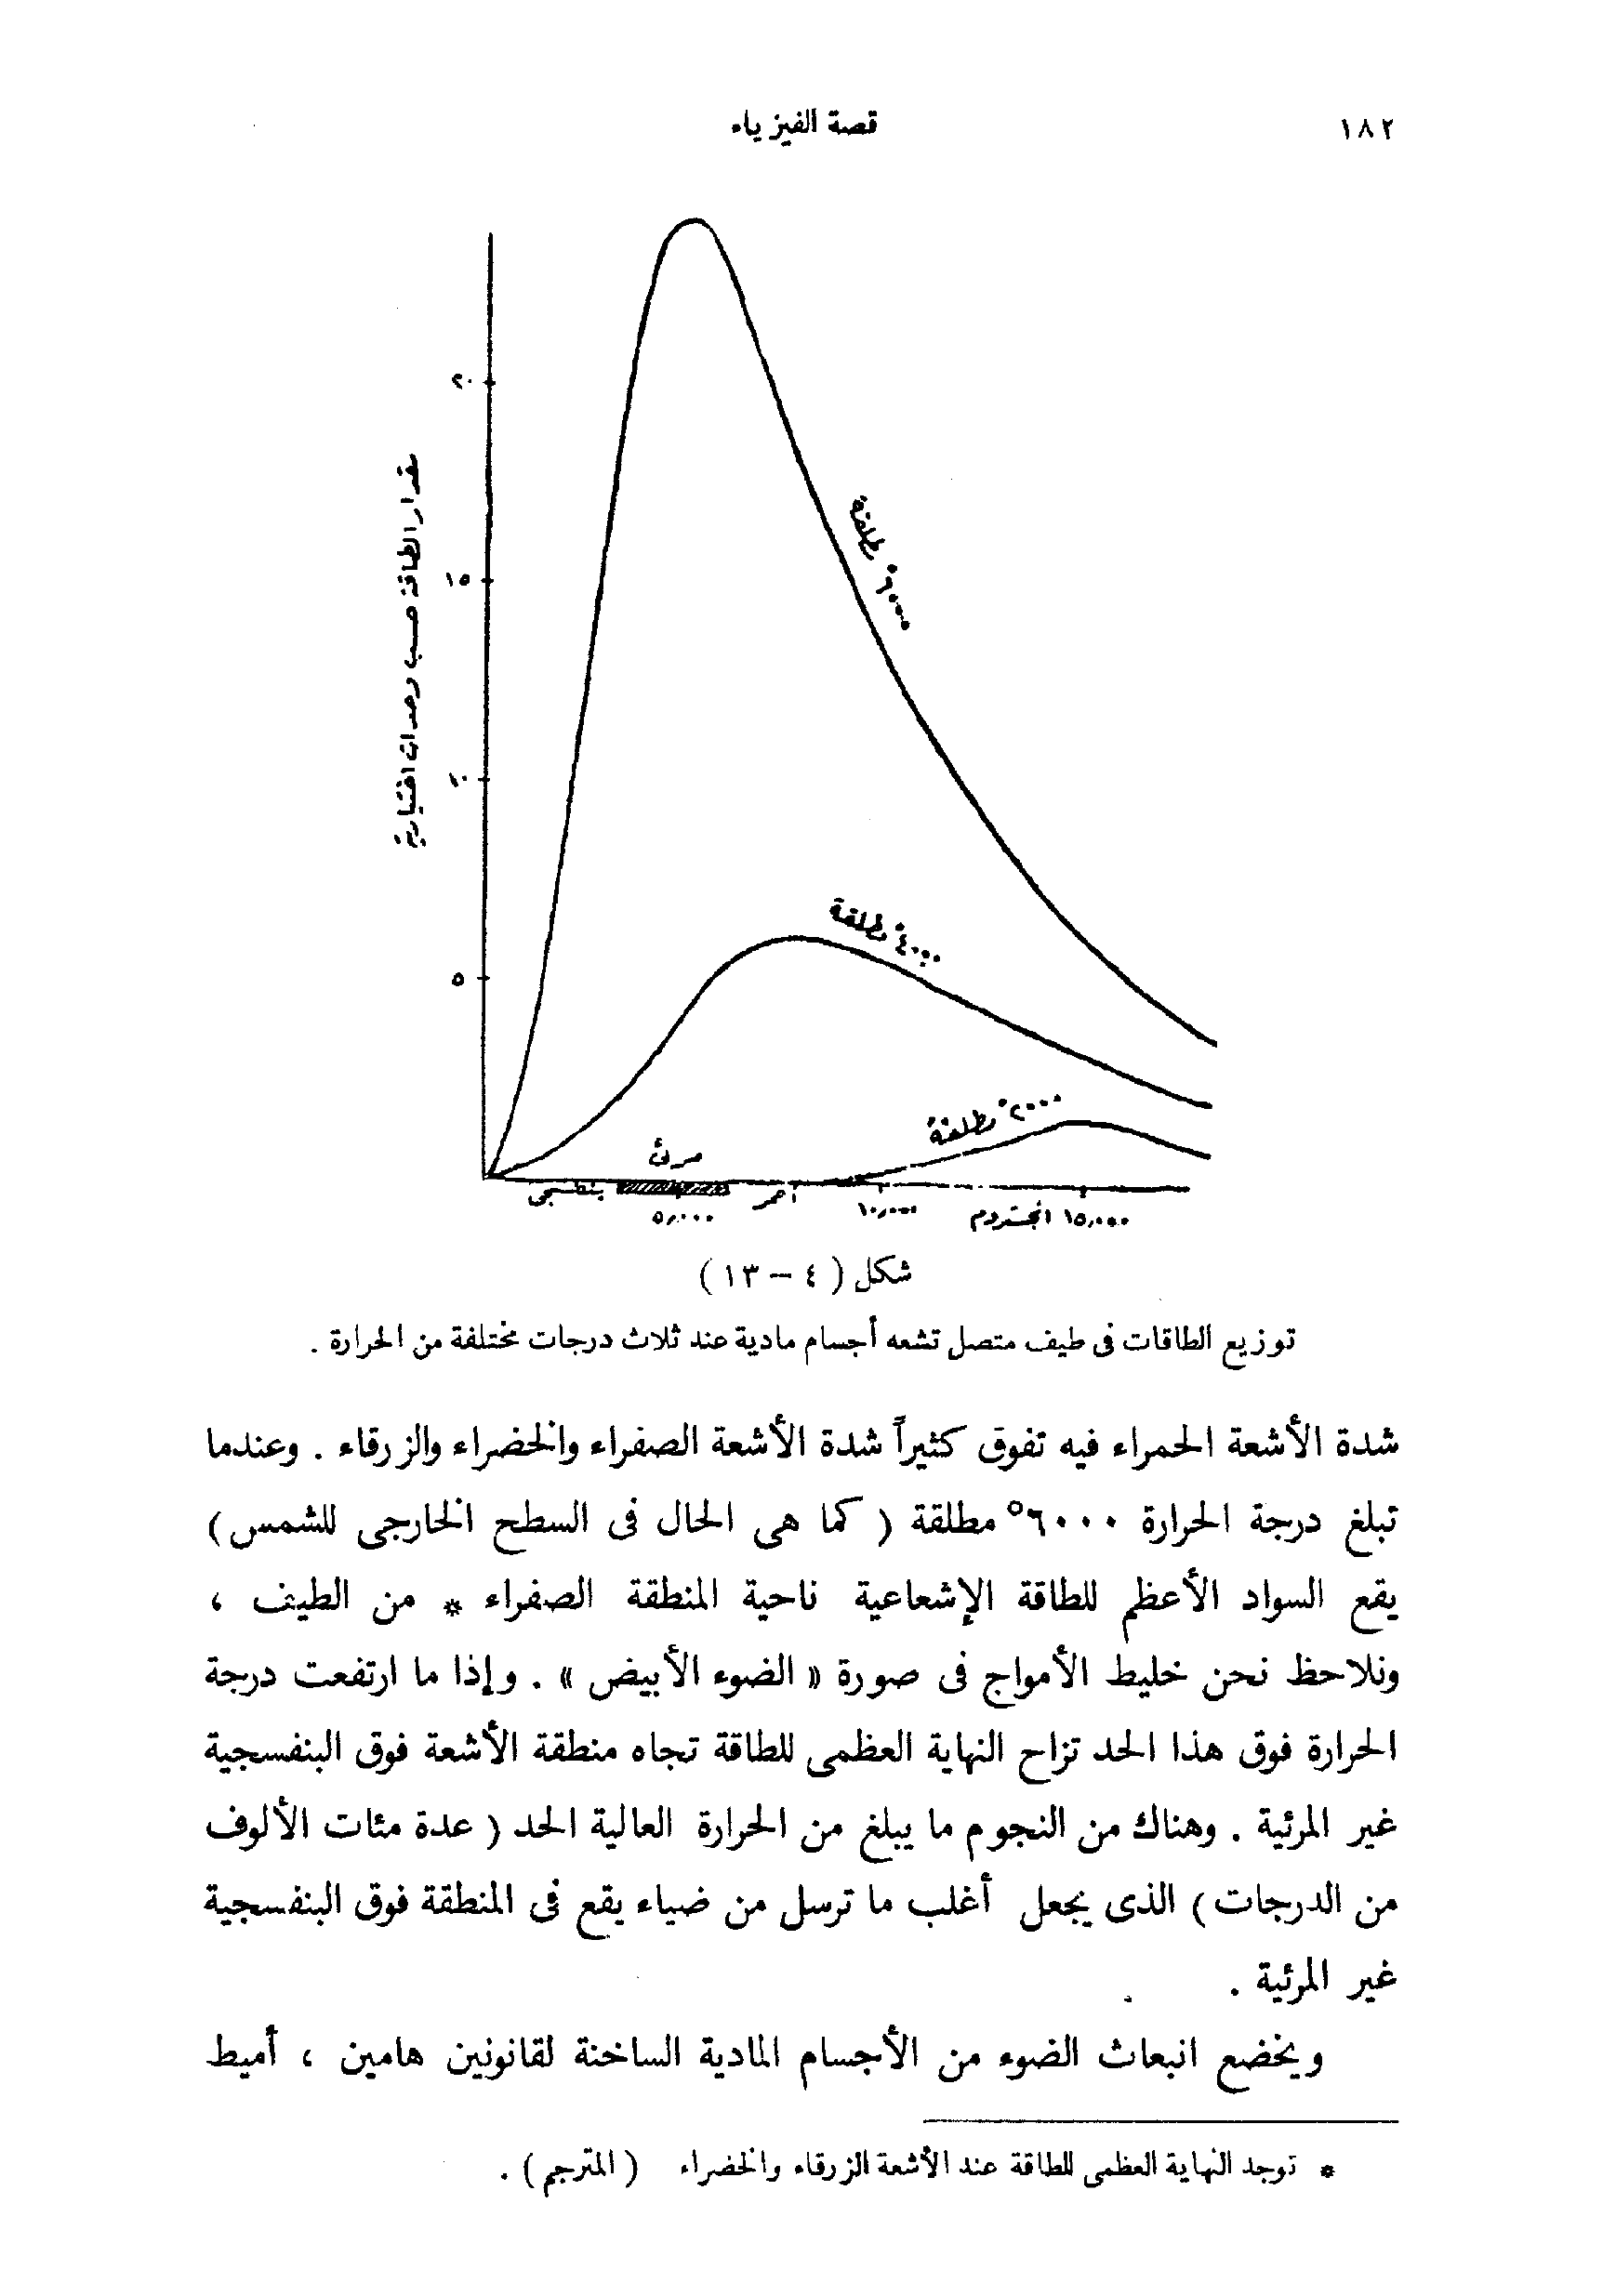 ١٨٢
قصة الفيزياء
٢٠
١٥
١٠
٥
مقدار الطاقة حسب وحدات اختيارية
٦٠٠٠° مطلقة
٤٠٠٠° مطلقة
٢٠٠٠° مطلقة
مرئى
بنفسجى
أحمر
٥,٠٠٠
١٠,٠٠٠
١٥,٠٠٠ انجستروم
شكل ( ٤ – ١٣ )
توزيع الطاقات فى طيف متصل تشعه أجسام مادية عند ثلاث درجات مختلفة من الحرارة .
شدة الأشعة الحمراء فيه تفوق كثيراً شدة الأشعة الصفراء والخضراء والزرقاء . وعندما
تبلغ درجة الحرارة ٦٠٠٠° مطلقة ( كما هى الحال فى السطح الخارجى للشمس )
يقع السواد الأعظم للطاقة الإشعاعية ناحية المنطقة الصفراء * من الطيف ،
ونلاحظ نحن خليط الأمواج فى صورة « الضوء الأبيض » . وإذا ما ارتفعت درجة
الحرارة فوق هذا الحد تزاح النهاية العظمى للطاقة تجاه منطقة الأشعة فوق البنفسجية
غير المرئية . وهناك من النجوم ما يبلغ من الحرارة العالية الحد ( عدة مئات الألوف
من الدرجات ) الذى يجعل أغلب ما ترسل من ضياء يقع فى المنطقة فوق البنفسجية
غير المرئية .
ويخضع انبعاث الضوء من الأجسام المادية الساخنة لقانونين هامين ، أميط
* توجد النهاية العظمى للطاقة عند الأشعة الزرقاء والخضراء ( المترجم ) .